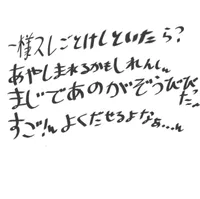 一様スしごとけしといたら?
あやしまれるかもしれんしw
まじであのがぞうびびったっ
すご!wよくだせるよなぁ…w